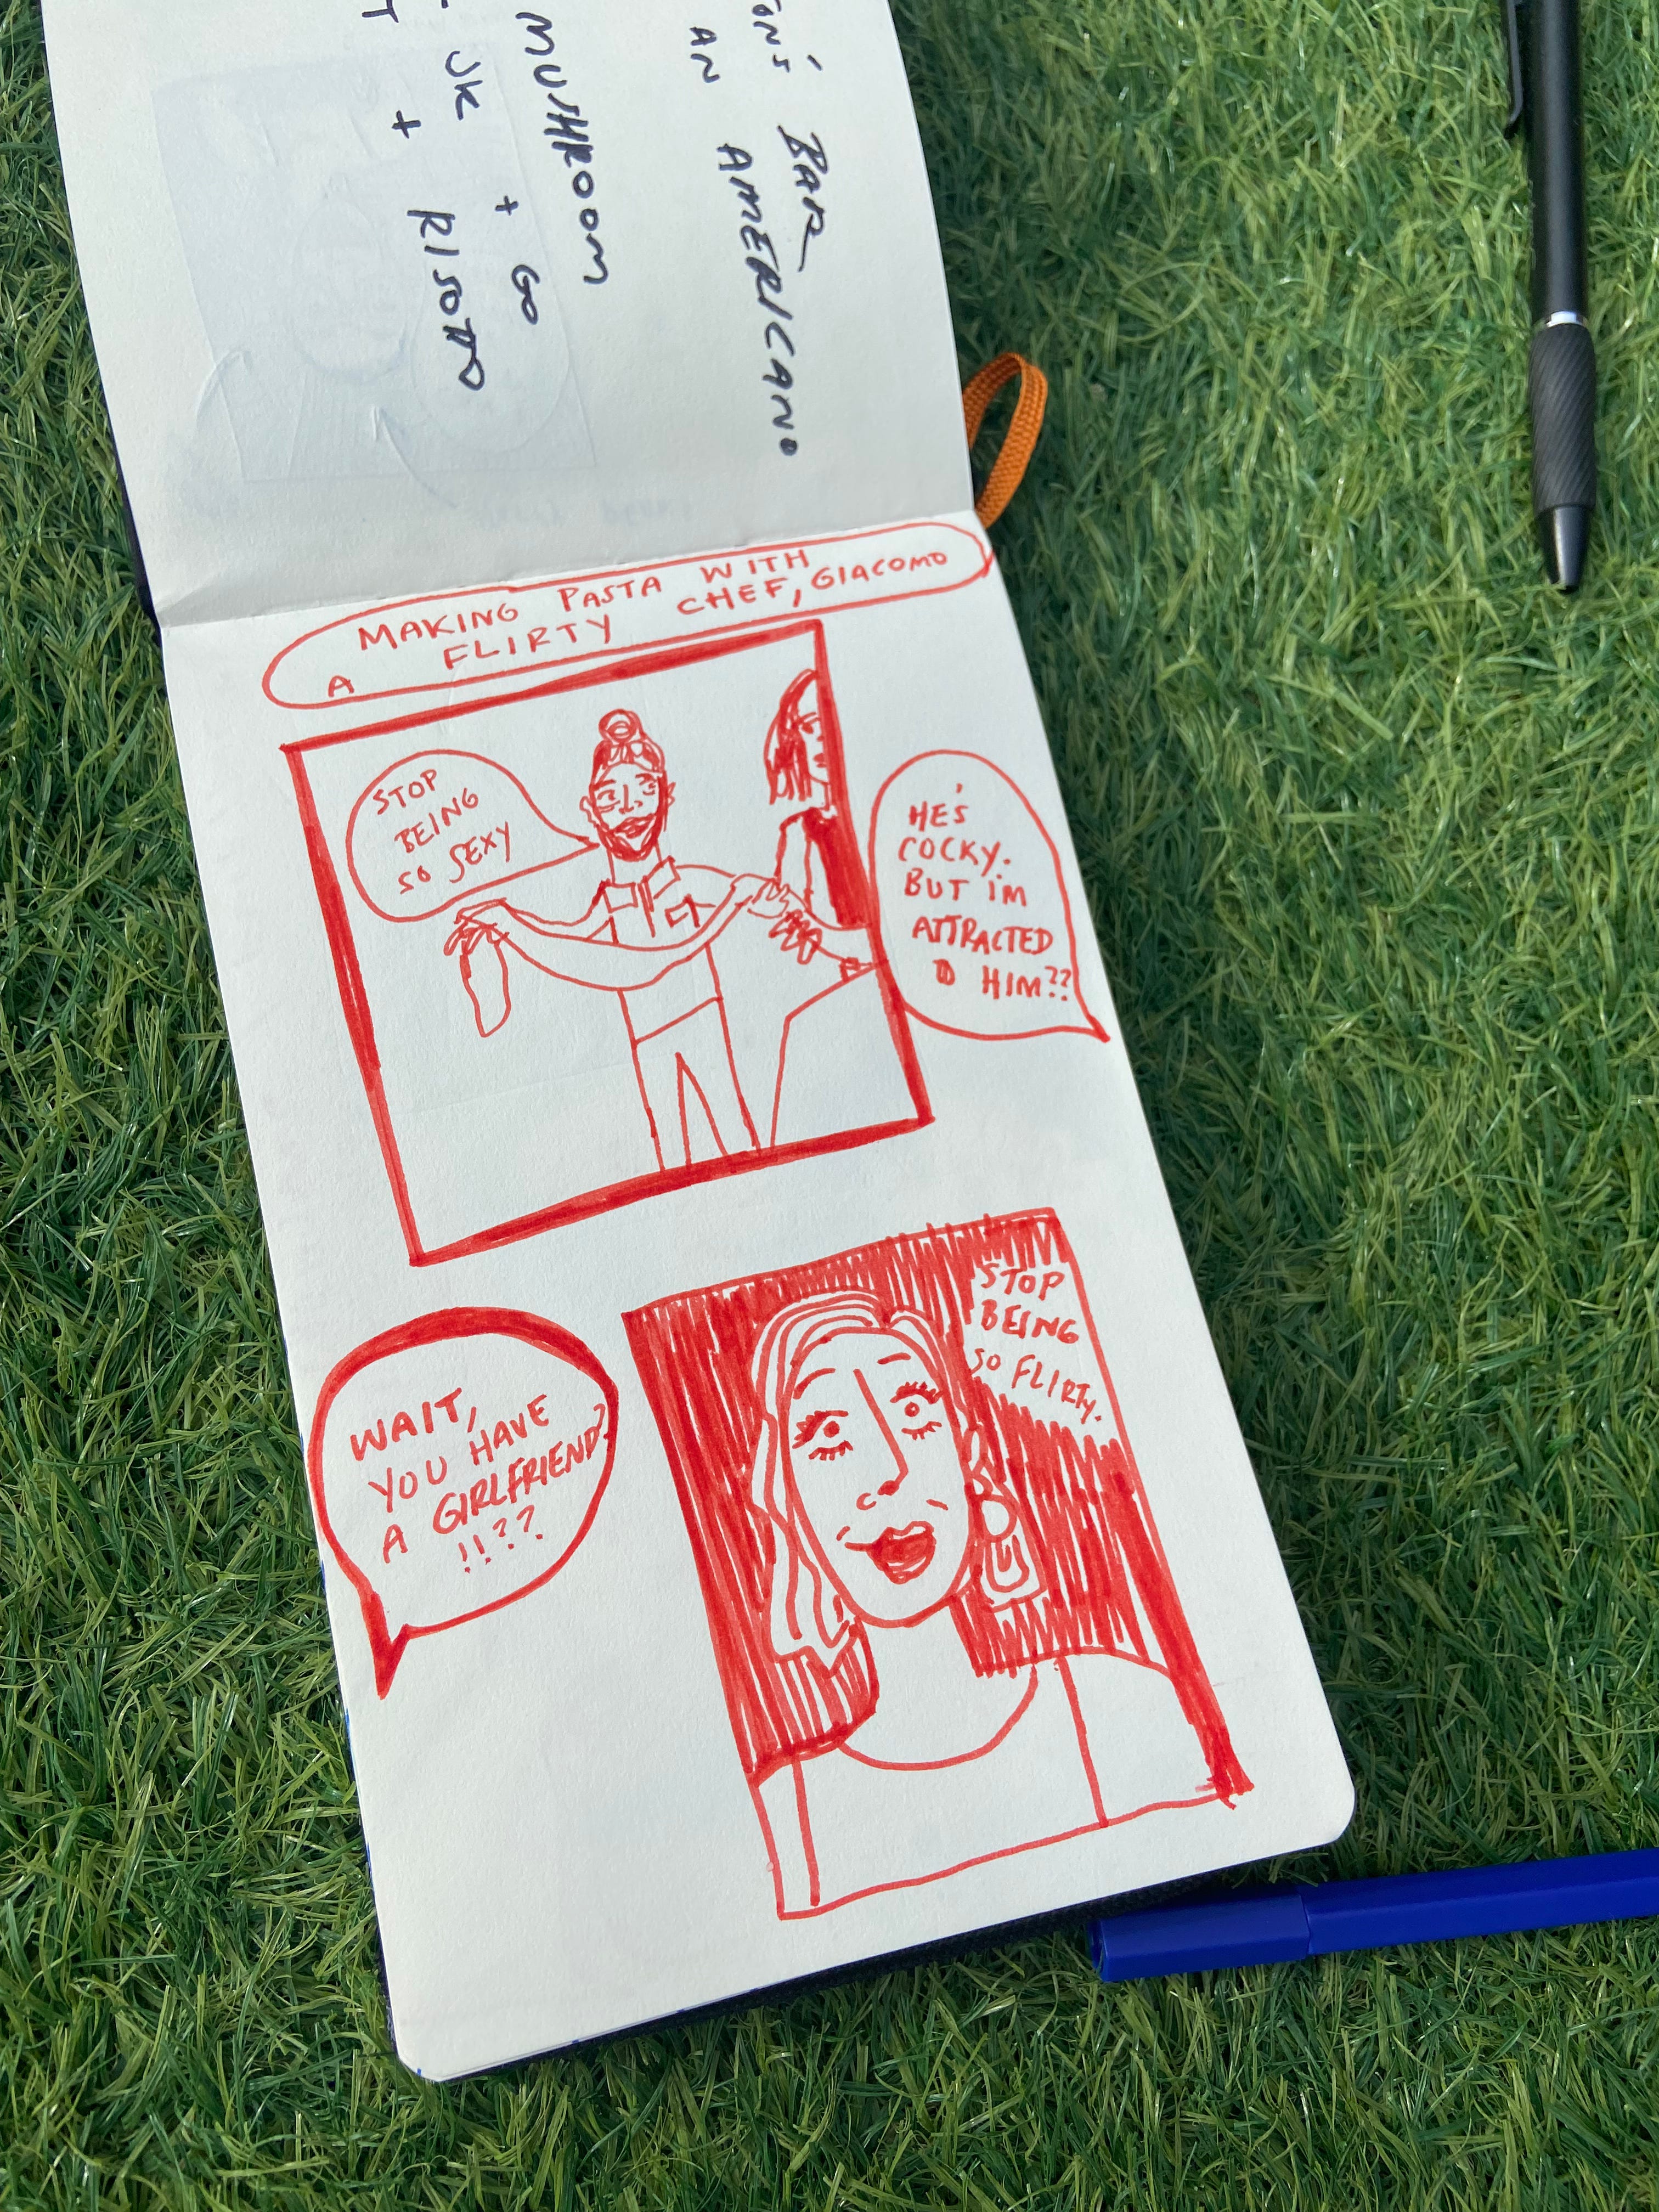 MUSHROOM
+ GO
UK
+ RISOTTO
BAR
AN AMERICANO
MAKING PASTA WITH
A FLIRTY CHEF, GIACOMO
STOP
BEING
SO SEXY
HE'S
COCKY.
BUT I'M
ATTRACTED
TO HIM??
WAIT,
YOU HAVE
A GIRLFRIEND?
!!??
STOP
BEING
SO FLIRTY.